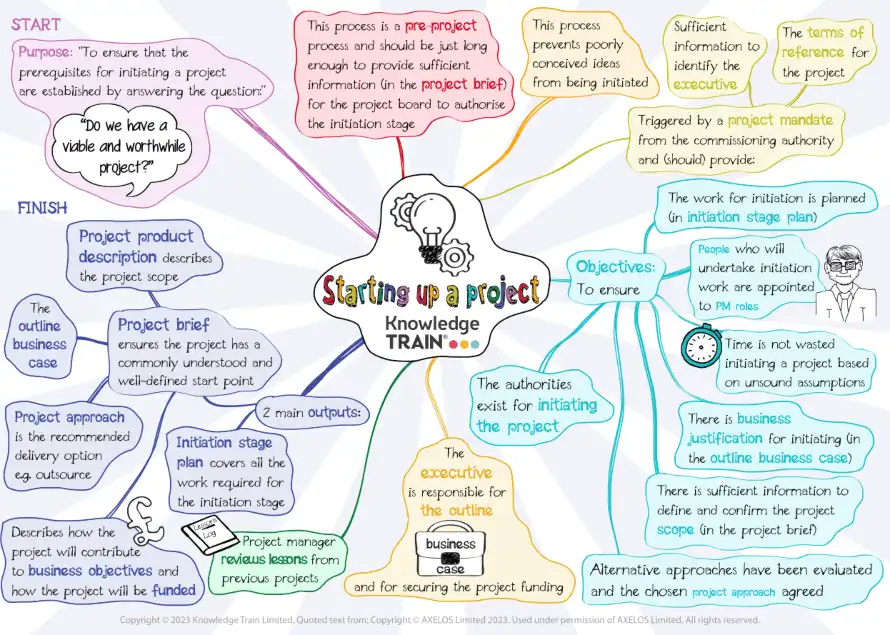 START
Purpose: "To ensure that the
prerequisites for initiating a project
are established by answering the question:"
"Do we have a
viable and worthwhile
project?"
This process is a pre-project
process and should be just long
enough to provide sufficient
information (in the project brief)
for the project board to authorise
the initiation stage
This process
prevents poorly
conceived ideas
from being initiated
Sufficient
information to
identify the
executive
The terms of
reference for
the project
Triggered by a project mandate
from the commissioning authority
and (should) provide:
Starting up a project
Knowledge
TRAIN®
Objectives:
To ensure
The work for initiation is planned
(in initiation stage plan)
People who will
undertake initiation
work are appointed
to PM roles
Time is not wasted
initiating a project based
on unsound assumptions
There is business
justification for initiating (in
the outline business case)
There is sufficient information to
define and confirm the project
scope (in the project brief)
Alternative approaches have been evaluated
and the chosen project approach agreed
The authorities
exist for initiating
the project
The
executive
is responsible for
the outline
business
case
and for securing the project funding
Lessons
Log
Project manager
reviews lessons from
previous projects
2 main outputs:
Initiation stage
plan covers all the
work required for
the initiation stage
Project brief
ensures the project has a
commonly understood and
well-defined start point
FINISH
Project product
description describes
the project scope
The
outline
business
case
Project approach
is the recommended
delivery option
e.g. outsource
£
Describes how the
project will contribute
to business objectives and
how the project will be funded
Copyright © 2023 Knowledge Train Limited. Quoted text from: Copyright © AXELOS Limited 2023. Used under permission of AXELOS Limited. All rights reserved.